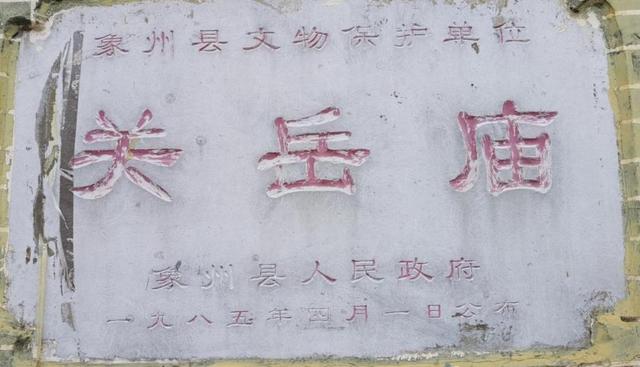 象州县文物保护单位
关岳庙
象州县人民政府
一九八五年四月一日公布